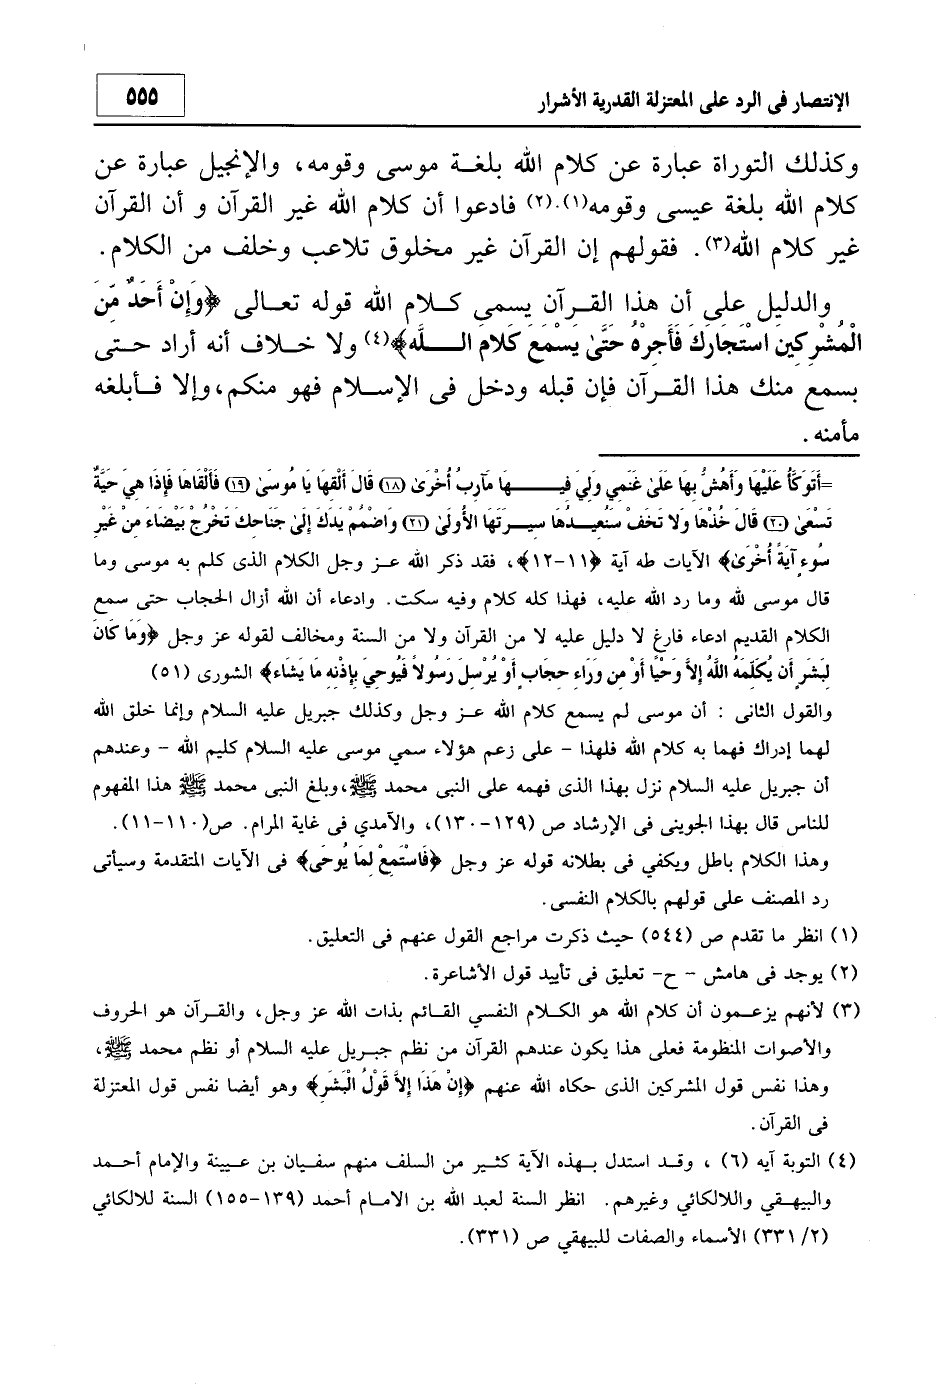 الإنتصار في الرد على المعتزلة القدرية الأشرار
٥٥٥
وكذلك التوراة عبارة عن كلام الله بلغـة موسى وقومه، والإنجيل عبارة عن
كلام الله بلغة عيسى وقومه(١).(٢) فادعوا أن كلام الله غير القرآن و أن القرآن
غير كلام الله(٣). فقولهم إن القرآن غير مخلوق تلاعب وخلف من الكلام.
والدليل على أن هذا القـرآن يسمى كـلام الله قوله تعـالى ﴿وَإِنْ أَحَدٌ مِّنَ
الْمُشْرِكِينَ اسْتَجَارَكَ فَأَجِرْهُ حَتَّىٰ يَسْمَعَ كَلامَ الـــلَّه﴾(٤) ولا خـلاف أنه أراد حـتى
يسمع منك هذا القـرآن فإن قبله ودخل فى الإسـلام فهو منكم، وإلا فـأبلغه
مأمنه.
=أَتَوَكَّأُ عَلَيْهَا وَأَهُشُّ بِهَا عَلَىٰ غَنَمِي وَلِيَ فِيـــهَا مَآرِبُ أُخْرَىٰ (١٨) قَالَ أَلْقِهَا يَا مُوسَىٰ (١٩) فَأَلْقَاهَا فَإِذَا هِيَ حَيَّةٌ
تَسْعَىٰ (٢٠) قَالَ خُذْهَا وَلا تَخَفْ سَنُعِيـدُهَا سِيـرَتَهَا الأُولَىٰ (٢١) وَاضْمُمْ يَدَكَ إِلَىٰ جَنَاحِكَ تَخْرُجْ بَيْضَاءَ مِنْ غَيْرِ
سُوءٍ آيَةً أُخْرَىٰ﴾ الآيات طه آية ﴿١١-١٢﴾، فقد ذكر الله عـز وجل الكلام الذى كلم به موسى وما
قال موسى لله وما رد الله عليه، فهذا كله كلام وفيه سكت. وادعاء أن الله أزال الحجاب حتى سمع
الكلام القديم ادعاء فارغ لا دليل عليه لا من القرآن ولا من السنة ومخالف لقوله عز وجل ﴿وَمَا كَانَ
لِبَشَرٍ أَن يُكَلِّمَهُ اللَّهُ إِلاَّ وَحْيًا أَوْ مِن وَرَاءِ حِجَابٍ أَوْ يُرْسِلَ رَسُولاً فَيُوحِيَ بِإِذْنِهِ مَا يَشَاءُ﴾ الشورى (٥١)
والقول الثانى : أن موسى لم يسمع كلام الله عـز وجل وكذلك جبريل عليه السلام وإنما خلق الله
لهما إدراك فهما به كلام الله فلهذا - على زعم هؤلاء سمي موسى عليه السلام كليم الله - وعندهم
أن جبريل عليه السلام نزل بهذا الذى فهمه على النبى محمد ﷺ، وبلغ النبى محمد ﷺ هذا المفهوم
للناس قال بهذا الجويني فى الإرشاد ص (١٢٩-١٣٠)، والآمدي فى غاية المرام. ص(١١٠-١١).
وهذا الكلام باطل ويكفي فى بطلانه قوله عز وجل ﴿فَاسْتَمِعْ لِمَا يُوحَىٰ﴾ فى الآيات المتقدمة وسيأتى
رد المصنف على قولهم بالكلام النفسى.
(١) انظر ما تقدم ص (٥٤٤) حيث ذكرت مراجع القول عنهم فى التعليق.
(٢) يوجد فى هامش - ح- تعليق فى تأييد قول الأشاعرة.
(٣) لأنهم يزعـمون أن كلام الله هو الكـلام النفسي القـائم بذات الله عز وجل، والقـرآن هو الحروف
والأصوات المنظومة فعلى هذا يكون عندهم القرآن من نظم جبريل عليه السلام أو نظم محمد ﷺ،
وهذا نفس قول المشركين الذى حكاه الله عنهم ﴿إِنْ هَذَا إِلاَّ قَوْلُ الْبَشَرِ﴾ وهو أيضا نفس قول المعتزلة
فى القرآن.
(٤) التوبة آيه (٦) ، وقـد استدل بـهذه الآية كثـير من السلف منهم سفـيان بن عـيينة والإمام أحـمد
والبيهـقي واللالكائي وغيرهم. انظر السنة لعبد الله بن الامام أحمد (١٣٩-١٥٥) السنة للالكائي
(٣٣١/٢) الأسماء والصفات للبيهقي ص (٣٣١).